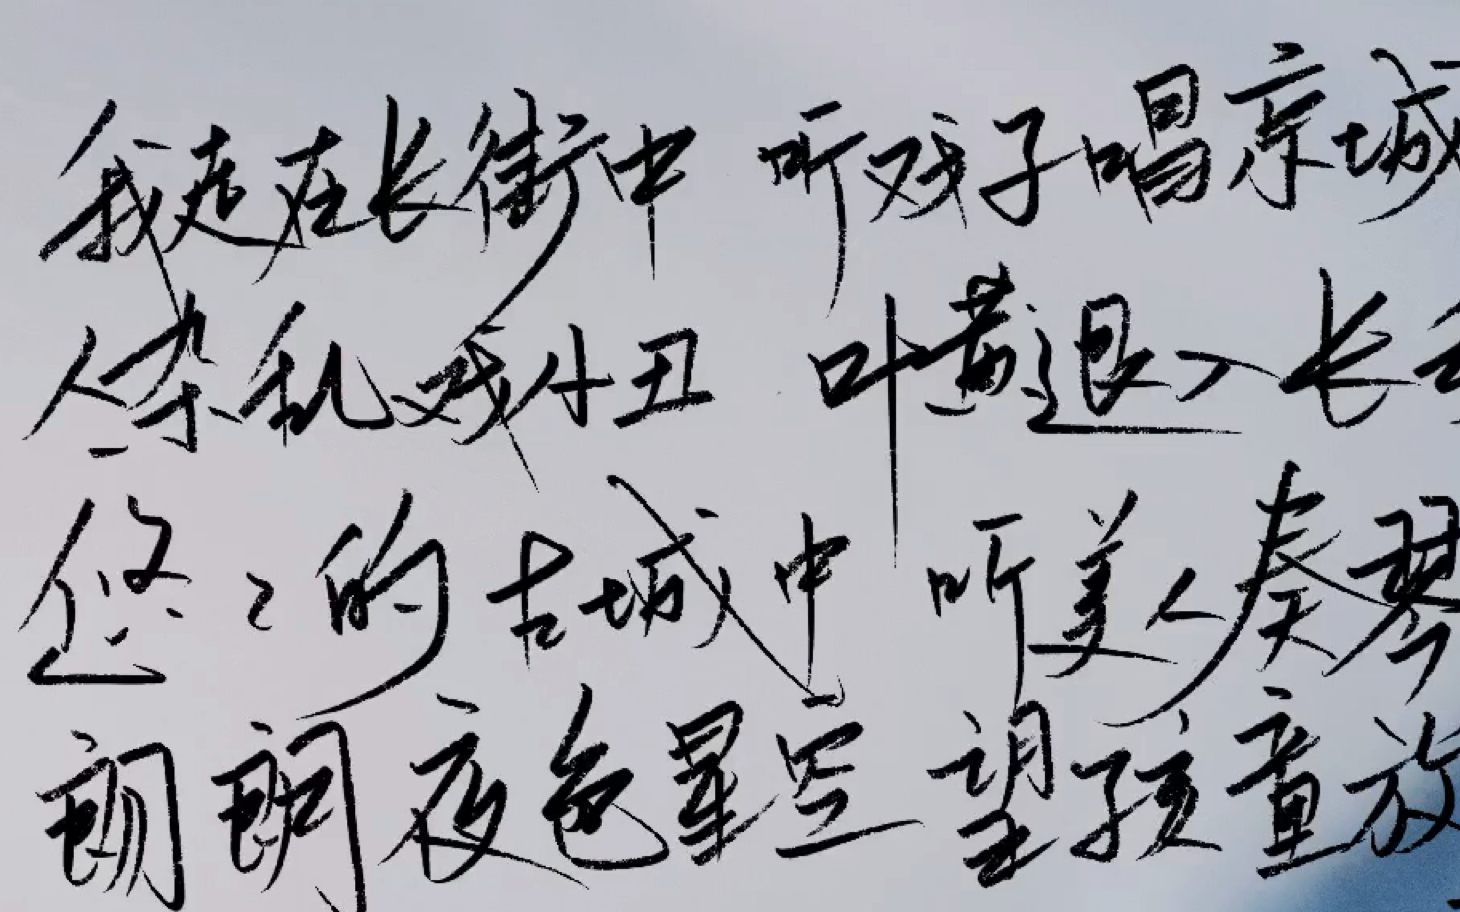 我走在长街中 听戏子唱京城
人杂乱戏小丑 叶黄退入长
悠悠的古城中 听美人奏琴
朗朗夜色星空 望孩童放